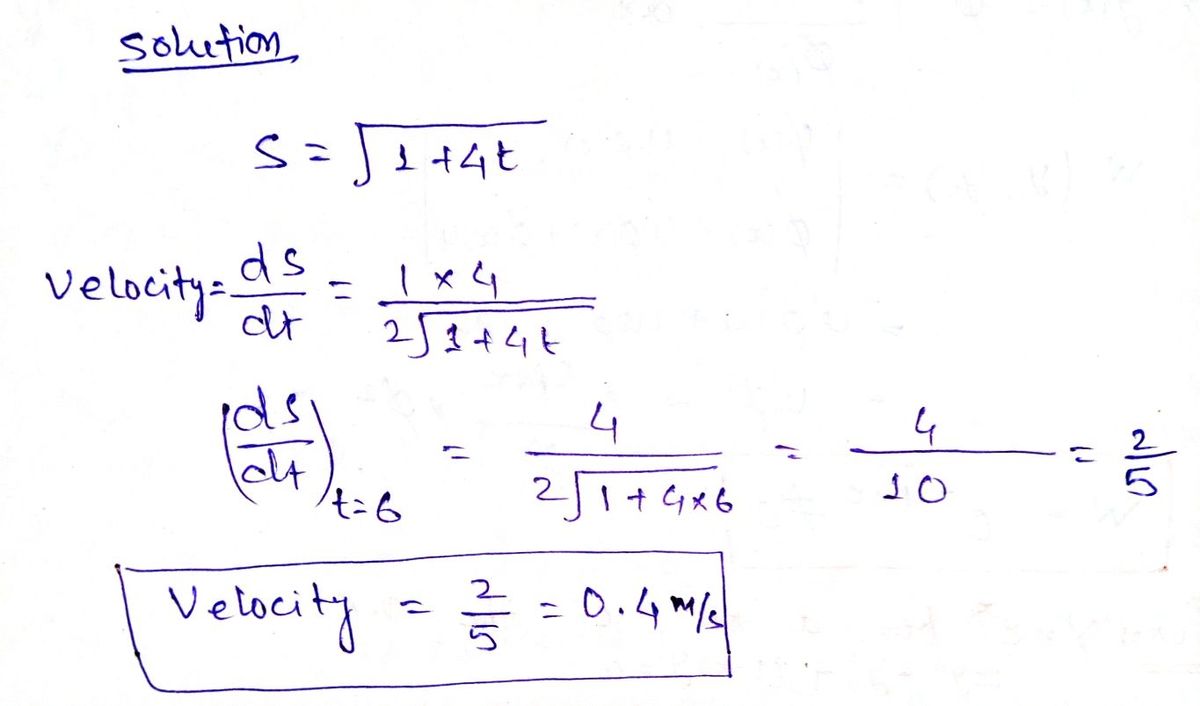 Solution
S = √1+4t
Velocity = ds/dt = 1×4 / 2√1+4t
(ds/dt)t=6 = 4 / 2√1+4×6 = 4/10 = 2/5
Velocity = 2/5 = 0.4 m/s